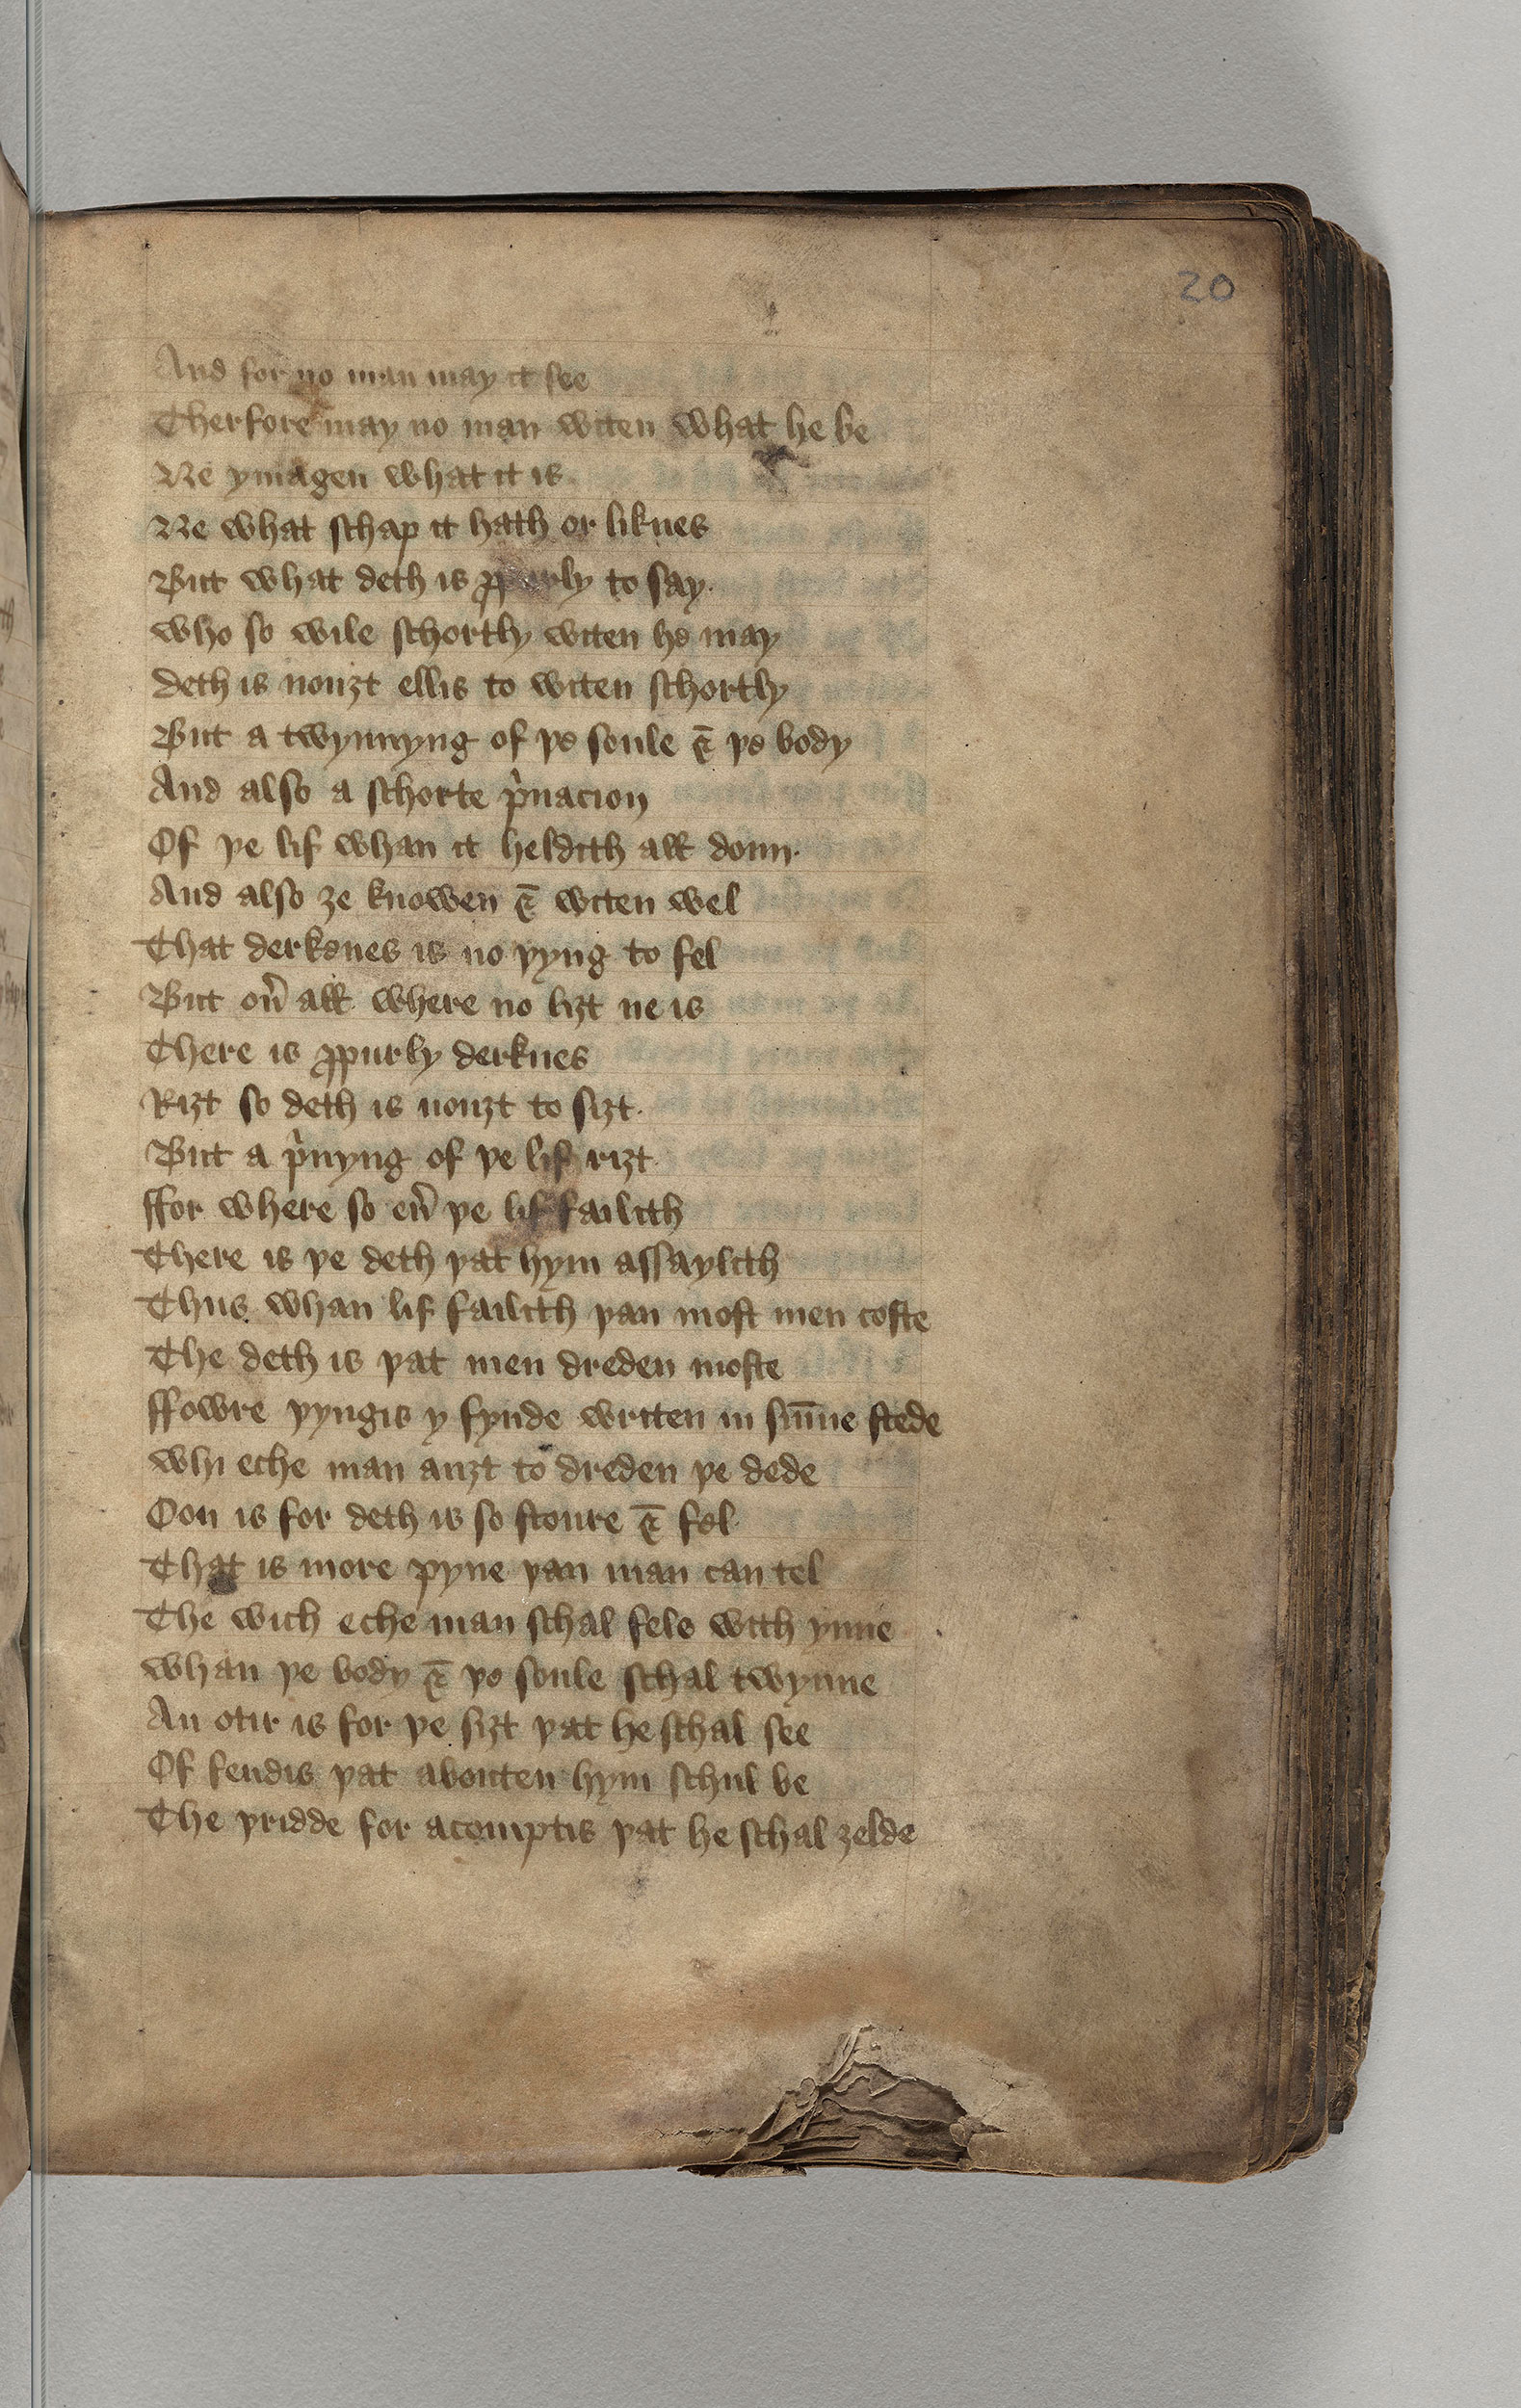 20
And for no man may it see
Therfore may no man witen what he be
Ne ymagen what it is
Ne what schap it hath or liknes
But what deth is ꝓpurly to say.
who so wile schortly witen he may
deth is nouȝt ellis to witen schortly
But a twynnyng of þe soule & þe body
And also a schorte pͥuacion
Of þe lif whan it heldith all doun.
And also ȝe knowen & witen wel
That derkenes is no þyng to fel
But ou̾ all where no liȝt ne is
There is ꝓpurly derknes
Riȝt so deth is nouȝt to siȝt.
But a pͥuyng of þe lif riȝt.
ffor where so eu̾ þe lif failith
There is þe deth þat hym assaylith
Thus whan lif failith þan most men coste
The deth is þat men dreden moste
ffowre þyngis y fynde writen in su̅me stede
whi eche man auȝt to dreden þe dede
Oon is for deth is so stoure & fel.
That is more pyne þan man can tel
The wich eche man schal fele with ynne
whan þe body & þe soule schal twynne
An otir is for þe siȝt þat he schal see
Of fendis þat abouten hym schul be
The þridde for acomptis þat he schal ȝelde